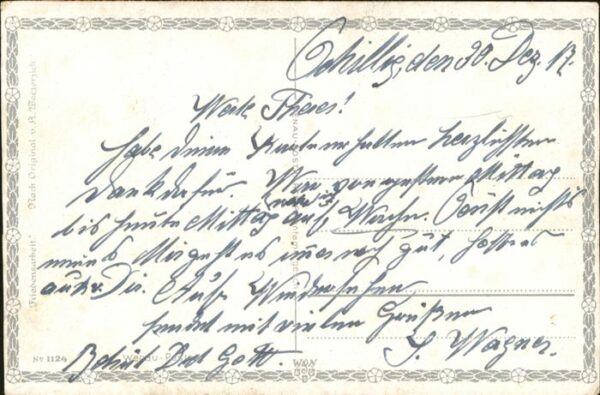 Schillig, den 30. Dez. 17.
Werte Theres!
Habe deine Karte erhalten herzlichsten
Dank dafür. War von gestern Mittag
bis heute Mittag auf Wache. Sonst nichts
neues Mir geht es immer noch gut, hoffe es
auch v. Dir. Auf Wiedersehen
sendet mit vielen Grüßen
S. Wagner.
Behüt Dich Gott.
Nach Original v. R.
"Friedensarbeit"
No 1124
W.S.N.